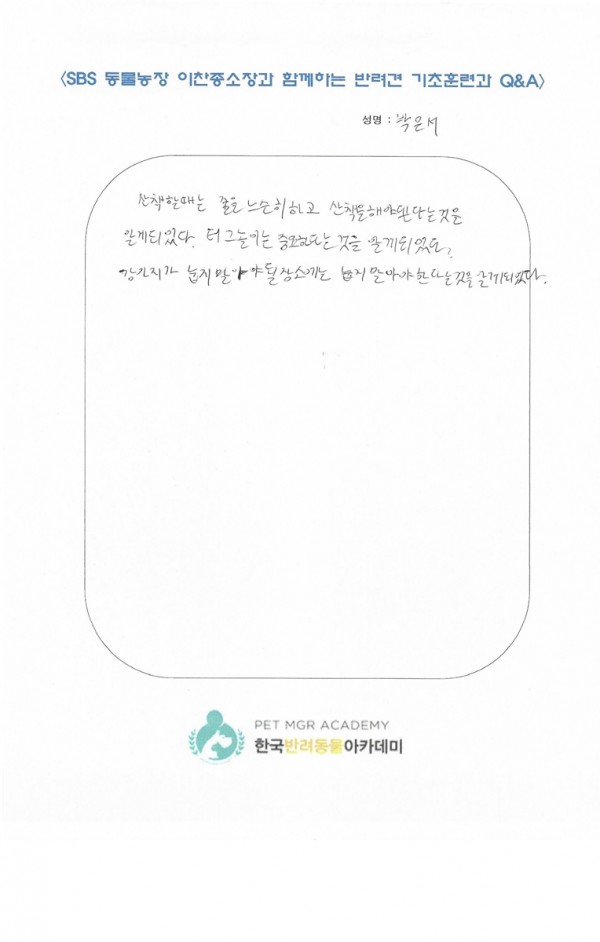 <SBS 동물농장 이찬종소장과 함께하는 반려견 기초훈련과 Q&A>
성명 : 박은서
산책할때는 줄을 느슨히하고 산책을해야된다는것을
알게되었다. 터그놀이는 중요하다는것을 알게되었다.
강아지가 눕지말아야될장소에는 눕지말아야한다는것을알게되었다.
PET MGR ACADEMY
한국반려동물아카데미